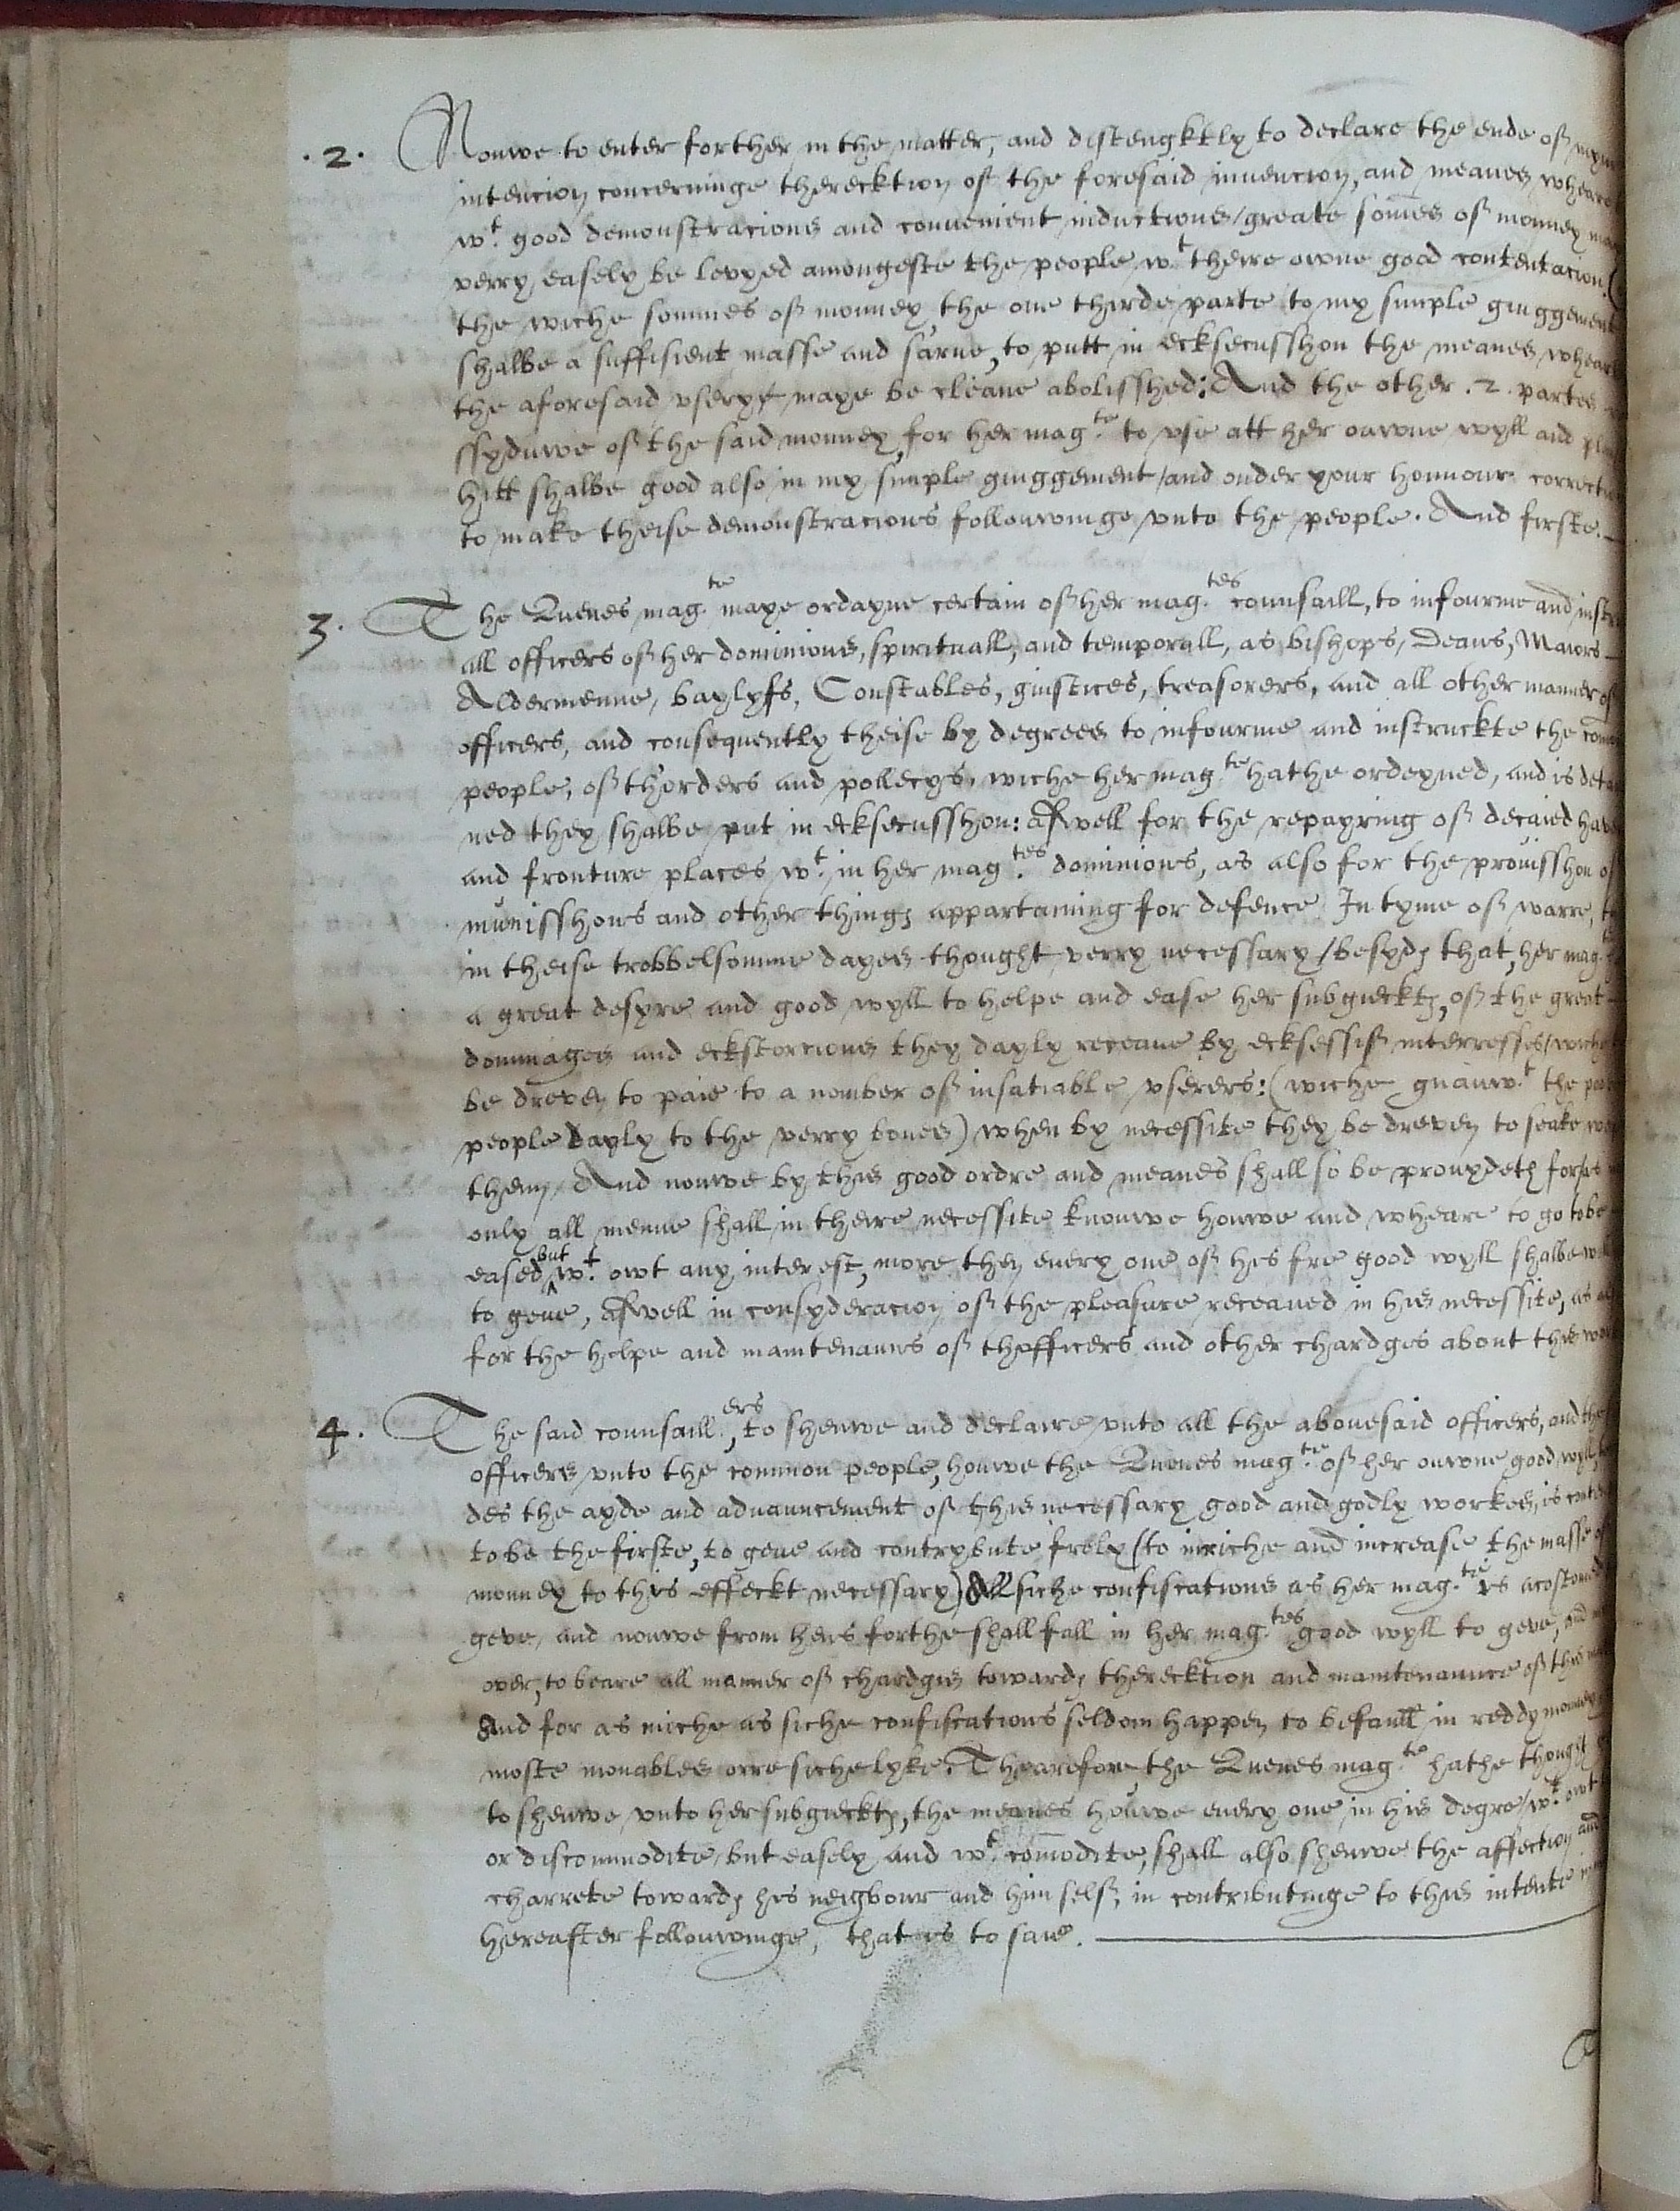 .2. Nouwe to enter forther in the matter, and distengktly to declare the ende of myn
intencion concerninge therecktion of the foresaid invencion, and meanes wheare
wt. good demonstracions and convenient inductions / greate somes of monney may
verry easely be levyed amongeste the people, wt theire owne good contentacion. (
the wiche sommes of monney, the one thirde parte to my simple ginggement
shalbe a suffisient masse and same, to putt in ecksecusshon the meanes, wheare
the aforesaid usery maye be cleane abolisshed: And the other .2. partes
ssyduwe of the said monney, for her mag.te to use att her oawne wyll and pl
hitt shalbe good also in my simple ginggement / and onder your honnour correctio
to make theise demonstracions followinge unto the people. And firste.
3. The Quenes mag.te maye ordayne certain of her mag.tes counsaill, to infourme and instr
all officers of her dominions, spirituall, and temporall, as bishops, Deans, Maiors
Aldermenne, baylyfs, Constables, giustices, treasorers, and all other manner of
officers, and consequently theise by degrees to infourme and instruckte the com
people, of th'orders and pollecys, wiche her mag.te hathe ordeyned, and is deter
ned they shalbe put in ecksecusshon: aswell for the repayring of decaied have
and fronture places wt. in her mag.tes dominions, as also for the provisshon of
munisshons and other things appartaining for defence In tyme of warre,
in theise trobbelsomme dayes thought verry necessary / besyds that, her mag.
a great desyre and good wyll to helpe and ease her subgieckts, of the great
dommages and eckstorcions they dayly receave by ecksessif interresses / wiche
be dreven to paie to a nomber of insatiable userers: (wiche gnauwt. the poor
people dayly to the verry bones) when by necessite they be dreven to seake
them, And nouwe by this good ordre and meanes shall so be provydeth for, as
only all menne shall in theire necessite knouwe houwe and wheare to go to be
eased, but wt. owt any interest, more then every one of his fre good wyll shalbe wil
to geve, aswell in consyderacion of the pleasure receaved in his necessite, as al
for the helpe and maintenanns of thofficers and other chardges about this wor
4. The said counsaill.ers, to sheuwe and declaire unto all the abovesaid officers, and the
officers unto the common people, houwe the Quenes mag.tie of her ouwne good wyll,
des the ayde and advauncement of this necessary good and godly workes, is conte
to be the firste, to geve and contrybute frely (to inriche and increase the masse of
monney to this effeckt necessary) All siche confiscations as her mag.tie is acostomed
geve, and nouwe from hens forthe shall fall in her mag.tes good wyll to geve, and
over, to beare all manner of chardgis towards therecktion and maintenannce of this
And for as miche as siche confiscations seldom happen to befaull in reddy monney
moste movables orre siche lyke: Thearefore the Quenes mag.te hathe thought
to sheuwe unto her subgieckts, the meanes houwe every one in his degre / wt. owt
or discommodite, but easely and wt. comodite, shall also sheuwe the affection and
charrete towards his neigbour and him self, in contributinge to this intente
hereafter followinge, that is to saie.